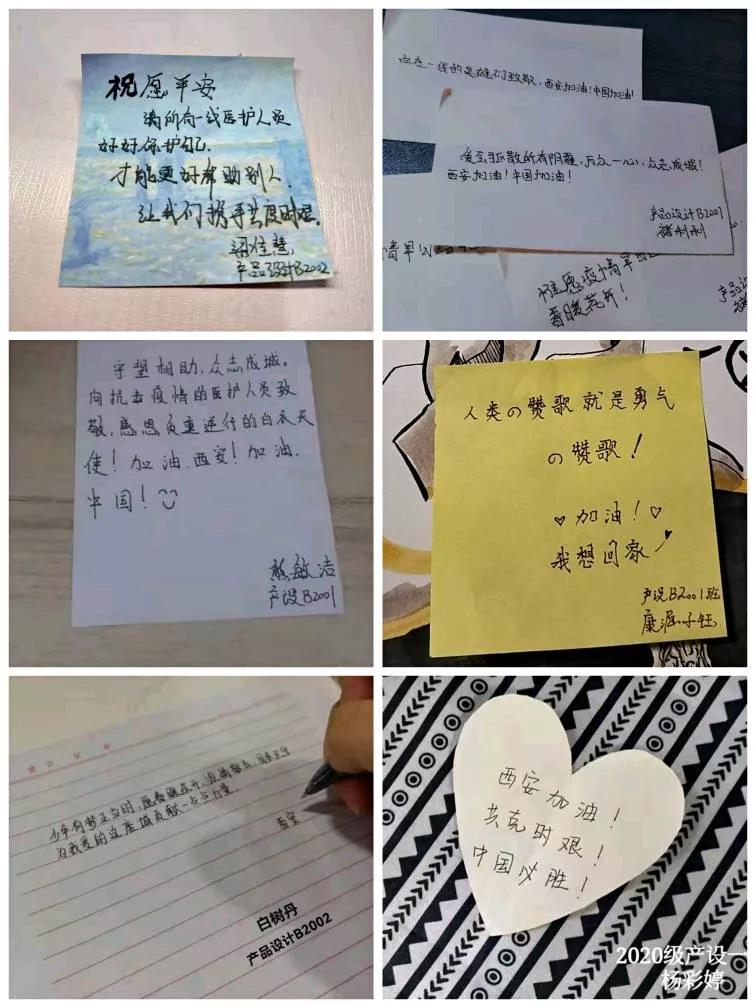 祝愿平安
请所有一线医护人员
好好保护自己
才能更好帮助别人.
让我们携手共度时艰.
梁佳慧
产品设计B2002
向在一线的英雄们致敬，西安加油！中国加油！
爱至驱散所有阴霾，万众一心，众志成城！
西安加油！中国加油！
产品设计B2001
褚利利
情早日
祝愿疫情早日
春暖花开！
产品设
守望相助，众志成城。
向抗击疫情的医护人员致
敬，感恩负重逆行的白衣天
使！加油，西安！加油，
中国！
熊敏洁
产设B2001
人类の赞歌就是勇气
の赞歌！
♡加油！♡
我想回家
产设B2001班
康涯子钰
少年有梦正当时，愿春暖花开，疫情散去，
为我爱的这座城贡献一点点力量.
西安
白树丹
产品设计B2002
西安加油！
共克时艰！
中国必胜！
2020级产设一
杨彩婷